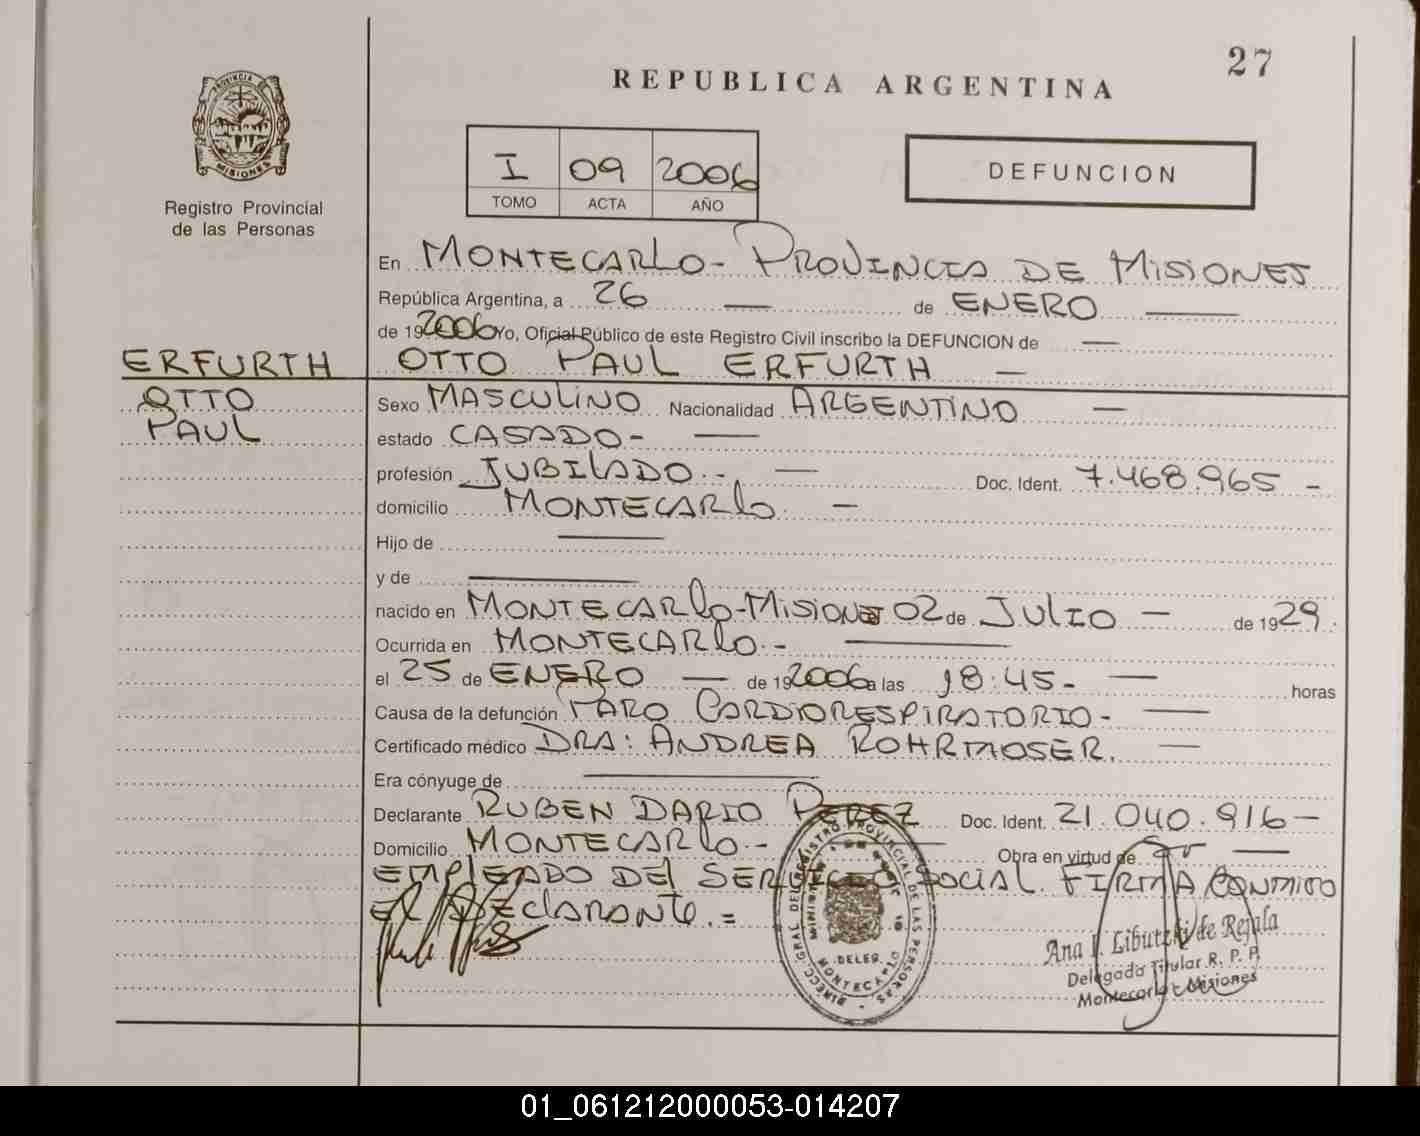 27
REPUBLICA ARGENTINA
PROVINCIA DE
MISIONES
Registro Provincial
de las Personas
I 09 2006
TOMO ACTA AÑO
DEFUNCION
En MONTECARLO- PROVINCIA DE MISIONES
República Argentina, a 26 — de ENERO —
de 19 2006 Yo, Oficial Público de este Registro Civil inscribo la DEFUNCION de —
ERFURTH OTTO PAUL ERFURTH —
OTTO Sexo MASCULINO Nacionalidad ARGENTINO —
PAUL estado CASADO- —
profesión JUBILADO.- — Doc. Ident. 7.468.965 -
domicilio MONTECARLO. —
Hijo de —
y de —
nacido en MONTECARLO-MISIONES 02 de JULIO — de 1929.
Ocurrida en MONTECARLO.- —
el 25 de ENERO — de 19 2006 a las 18:45- — horas
Causa de la defunción PARO CARDIORESPIRATORIO- —
Certificado médico DRA: ANDREA ROHRMOSER. —
Era cónyuge de —
Declarante RUBEN DARIO PEREZ Doc. Ident. 21.040.916-
Domicilio MONTECARLO.- — Obra en virtud de —
EMPLEADO DEL SERVICIO SOCIAL. FIRMA CONMIGO
EL DECLARANTE.=
DIRECC. GRAL DEL REGISTRO PROVINCIAL DE LAS PERSONAS
DELEG.
MONTECARLO
Libutzki de Rejala
Delegada Titular R. P. P.
Montecarlo - Misiones
01_061212000053-014207